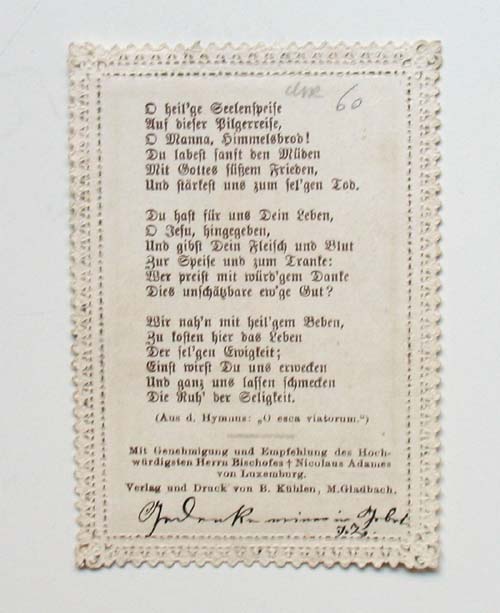 60
O heil'ge Seelenspeise
Auf dieser Pilgerreise,
O Manna, Himmelsbrod!
Du labest sanft den Müden
Mit Gottes süßem Frieden,
Und stärkest uns zum sel'gen Tod.
Du hast für uns Dein Leben,
O Jesu, hingegeben,
Und gibst Dein Fleisch und Blut
Zur Speise und zum Tranke:
Wer preist mit würd'gem Danke
Dies unschätzbare ew'ge Gut?
Wir nah'n mit heil'gem Beben,
Zu kosten hier das Leben
Der sel'gen Ewigkeit;
Einst wirst Du uns erwecken
Und ganz uns lassen schmecken
Die Ruh' der Seligkeit.
(Aus d. Hymnus: „O esca viatorum.“)
Mit Genehmigung und Empfehlung des Hoch-
würdigsten Herrn Bischofes † Nicolaus Adames
von Luxemburg.
Verlag und Druck von B. Kühlen, M.Gladbach.
Gedenke meiner im Gebet